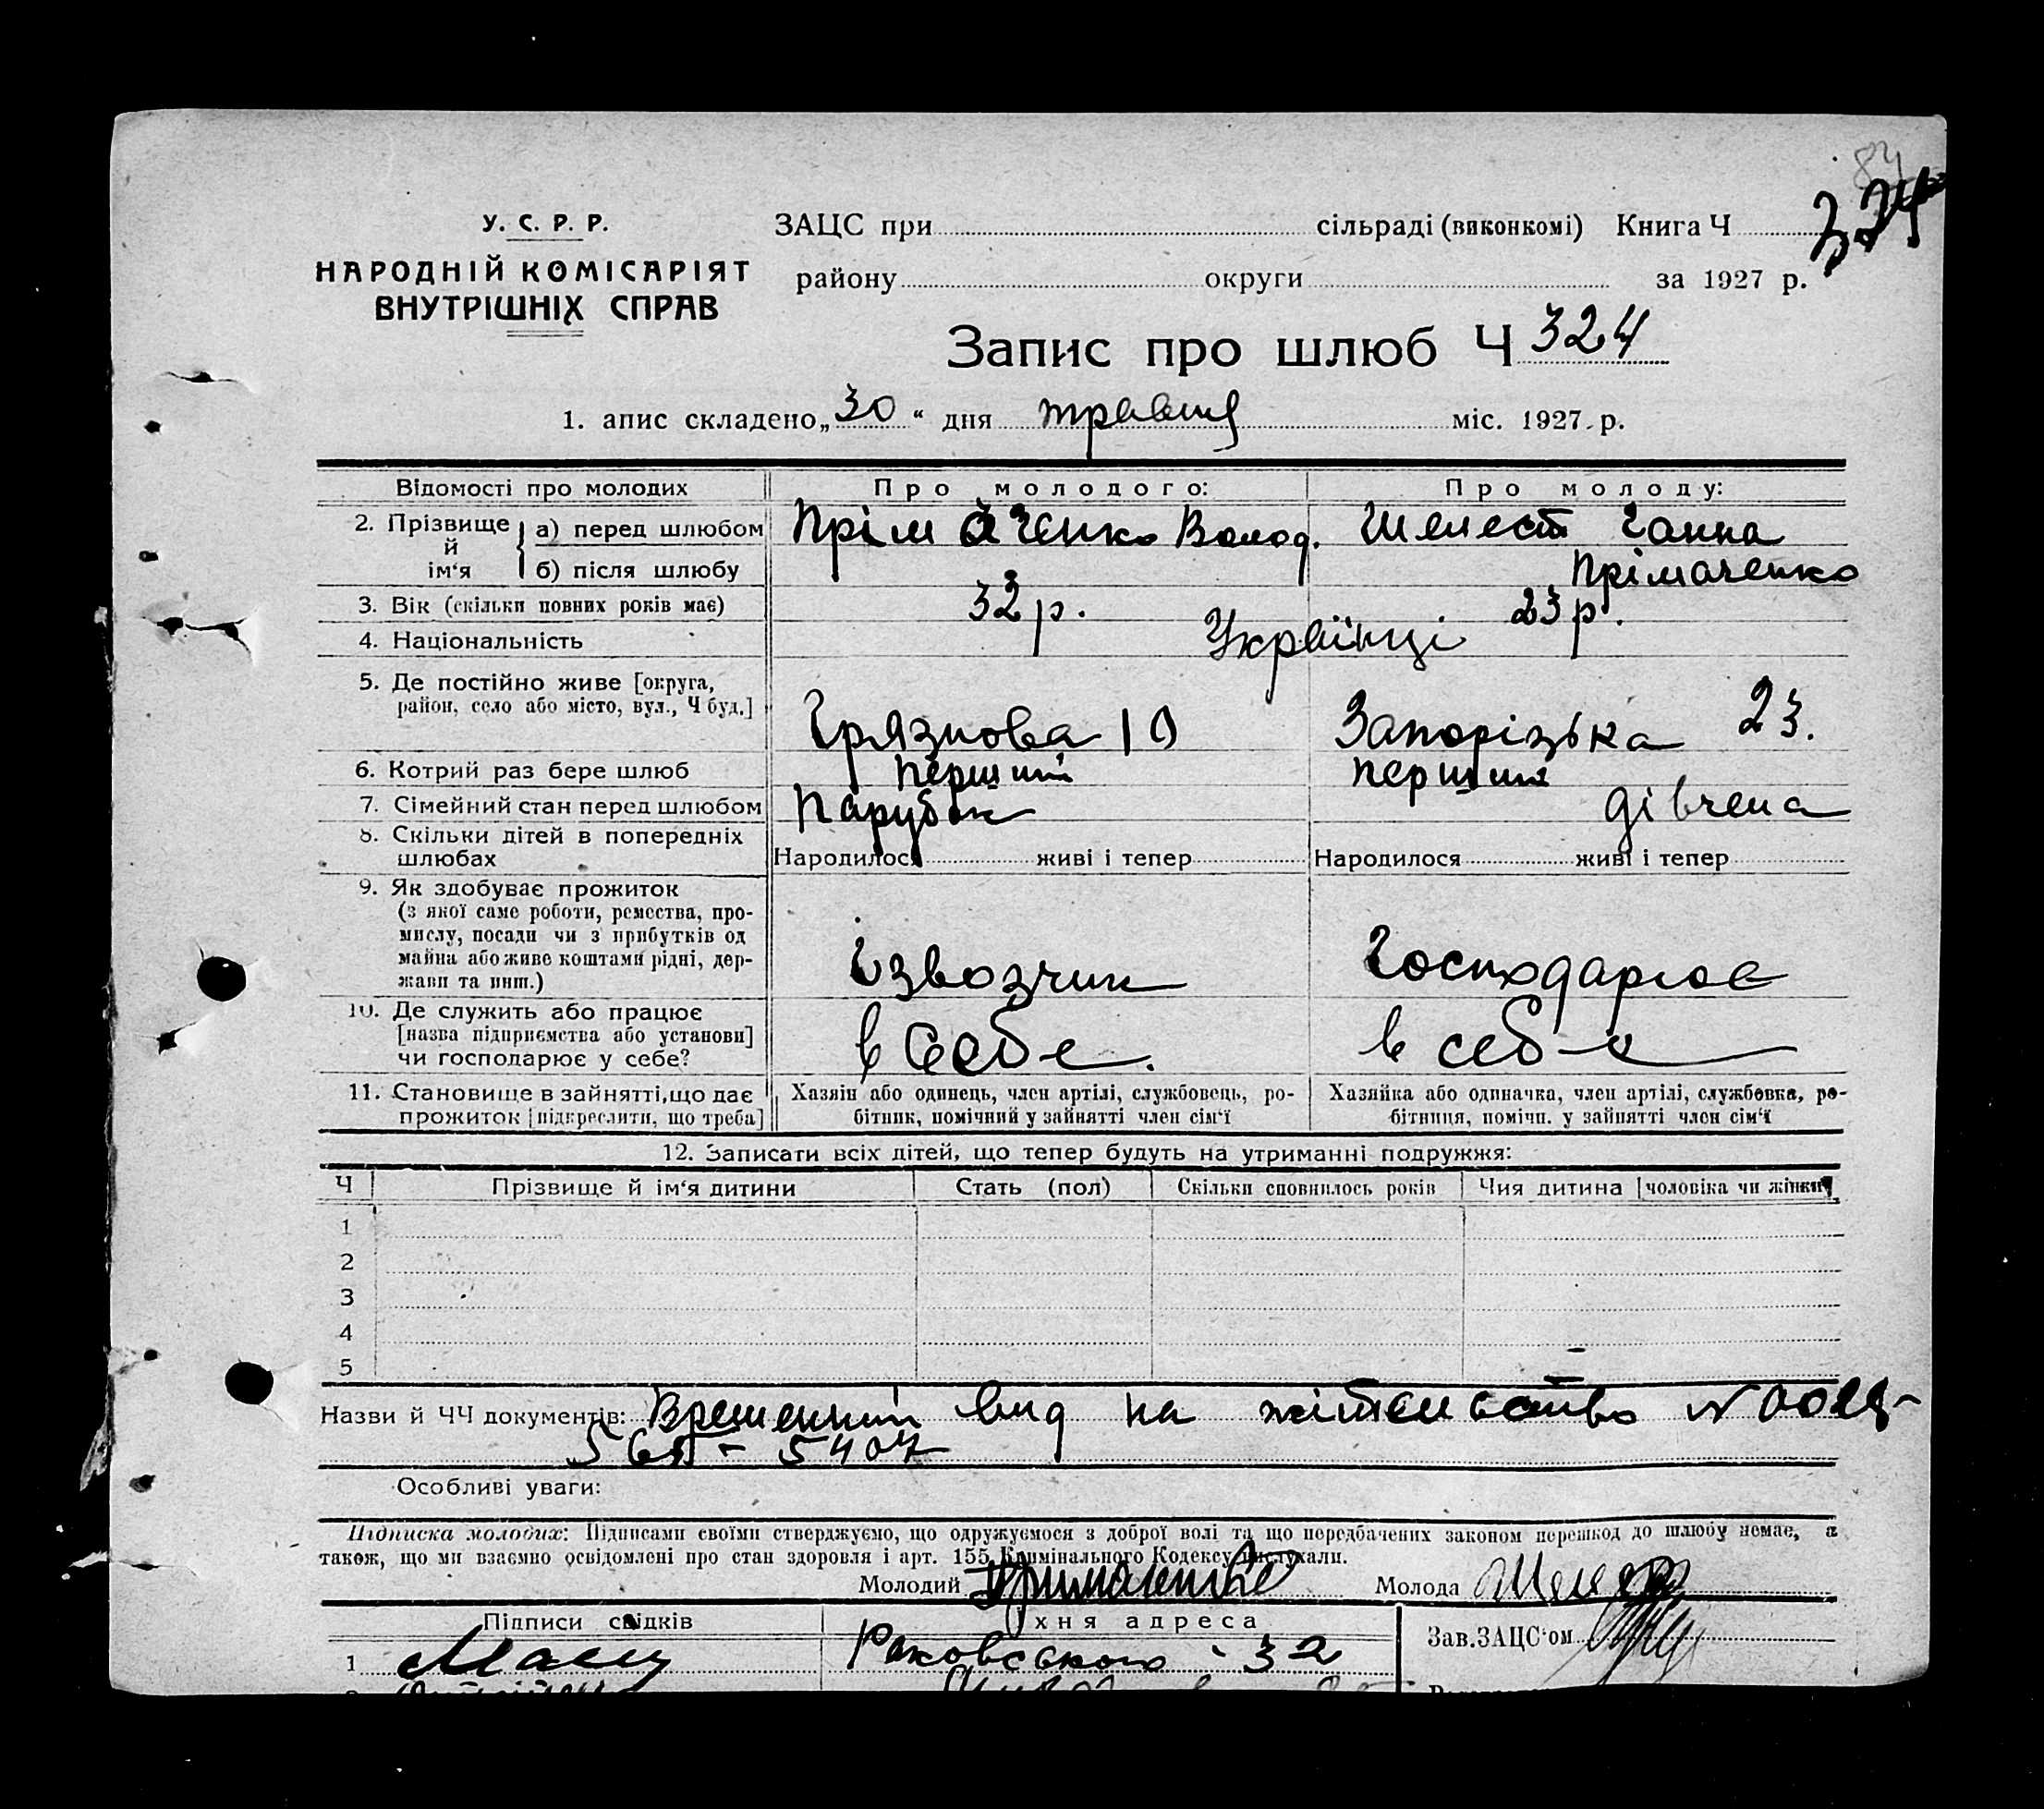 84
324
У. С. Р. Р.
НАРОДНІЙ КОМІСАРІЯТ
ВНУТРІШНІХ СПРАВ
ЗАЦС при сільраді (виконкомі) Книга Ч
району округи за 1927 р.
Запис про шлюб Ч 324
1. апис складено „30“ дня травня міс. 1927 р.
Відомості про молодих Про молодого: Про молоду:
2. Прізвище й ім‘я а) перед шлюбом Прімаченко Волод. Шелест Ганна
б) після шлюбу Прімаченко
3. Вік (скільки повних років має) 32 р. 23 р.
4. Національність Українці
5. Де постійно живе [округа,
район, село або місто, вул., Ч буд.] Грязнова 10 Запорізька 23.
6. Котрий раз бере шлюб перший перший
7. Сімейний стан перед шлюбом парубок дівчена
8. Скільки дітей в попередніх
шлюбах Народилося живі і тепер Народилося живі і тепер
9. Як здобуває прожиток
(з якої саме роботи, ремества, про-
мислу, посади чи з прибутків од
майна або живе коштами рідні, дер-
жави та инш.) Ізвозчик Господарює
10. Де служить або працює
[назва підприємства або установи]
чи господарює у себе? в себе. в себе
11. Становище в зайнятті, що дає Хазяін або одинець, член артілі, службовець, ро- Хазяйка або одиначка, член артілі, службовка, ро-
прожиток [підкреслити, що треба] бітник, помічний у зайнятті член сім‘ї бітниця, помічн. у зайнятті член сім‘ї
12. Записати всіх дітей, що тепер будуть на утриманні подружжя:
Ч Прізвище й ім‘я дитини Стать (пол) Скільки сповнилось років Чия дитина [чоловіка чи жінки]
1
2
3
4
5
Назви й ЧЧ документів: Временний вид на жітєльство №
5407
Особливі уваги:
Підписка молодих: Підписами своїми стверджуємо, що одружуємося з доброї волі та що передбачених законом перешкод до шлюбу немає, а
також, що ми взаємно освідомлені про стан здоровля і арт. 155 Кримінального Кодексу вислухали.
Молодий Примаченко Молода
Підписи свідків хня адреса
Зав.ЗАЦС‘ом
1 Раковського - 32